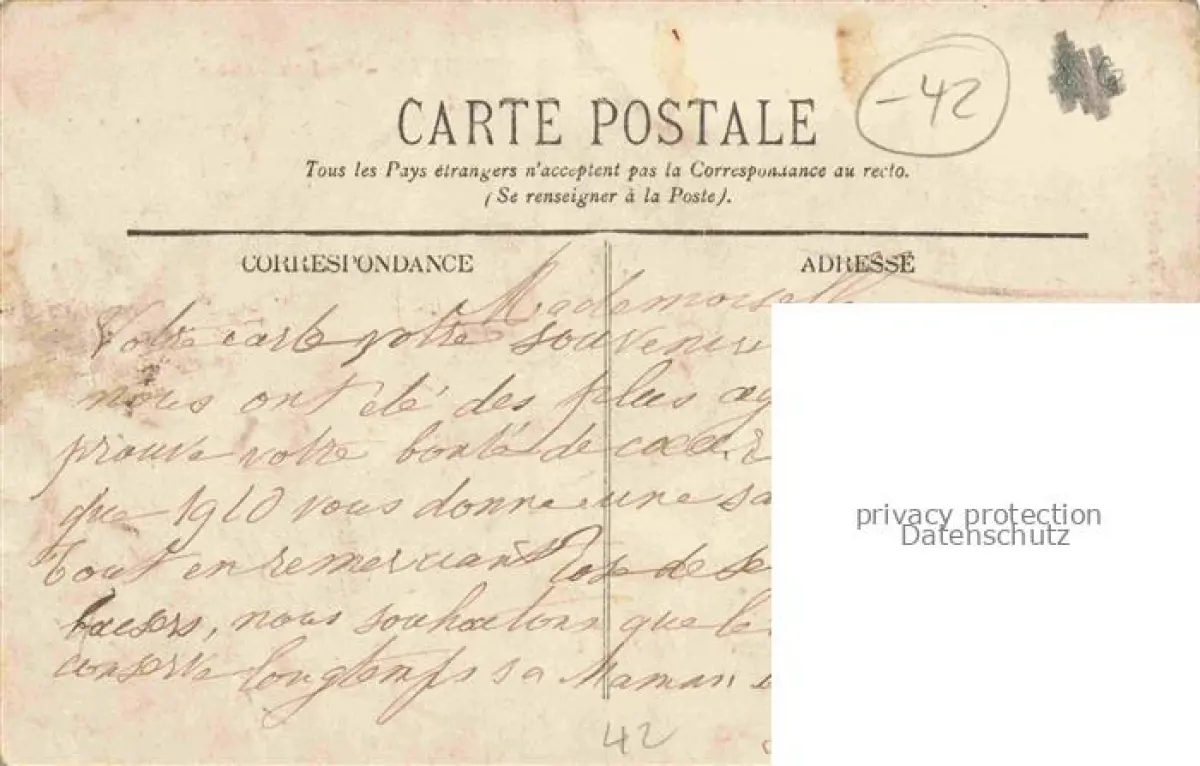 -42
CARTE POSTALE
Tous les Pays étrangers n'acceptent pas la Correspondance au recto.
(Se renseigner à la Poste).
CORRESPONDANCE
ADRESSE
Mademoiselle
Votre carte votre souvenir
nous ont été des plus ag
prouve votre bonté de coeur
que 1910 vous donne une sa
tout en remerciant Rose de se
baesers, nous souhaitons que le
conserve longtemps sa Maman
42
privacy protection
Datenschutz